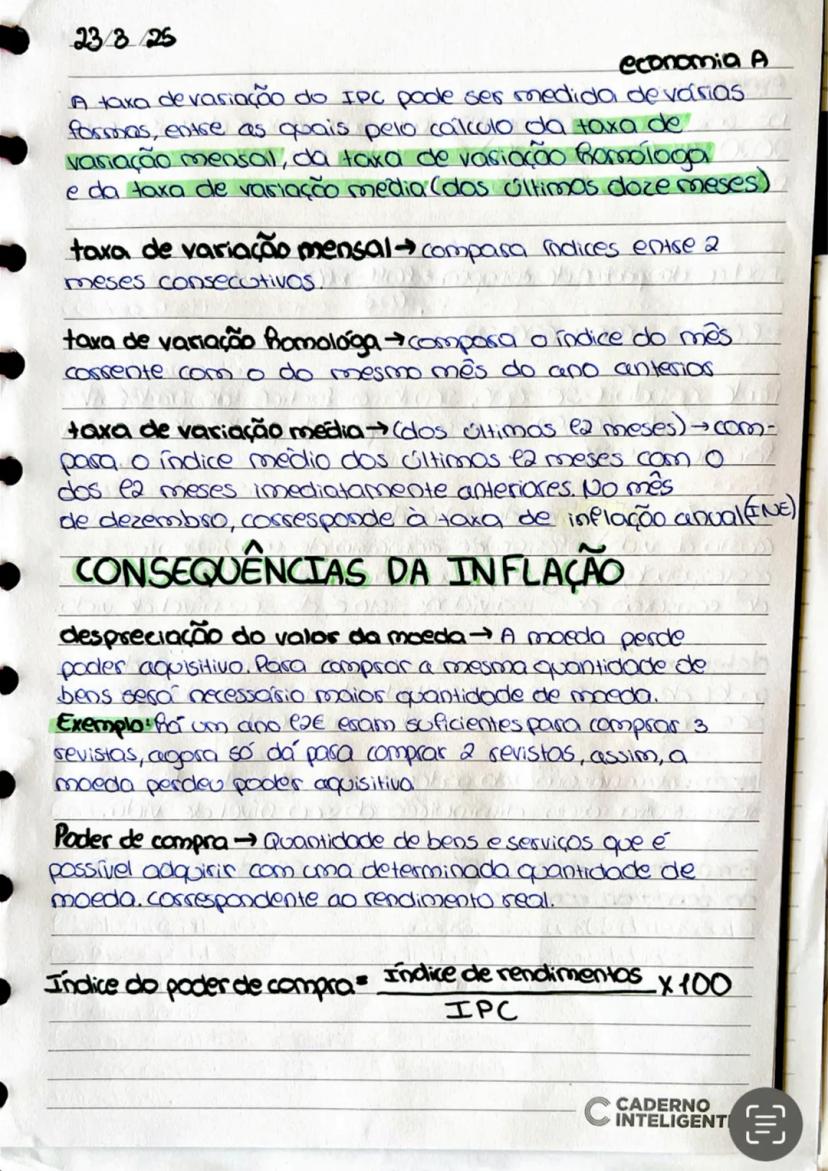 23/3/25
economia A
A taxa de variação do IPC pode ser medida de várias
formas, entre as quais pelo cálculo da taxa de
variação mensal, da taxa de variação homóloga
e da taxa de variação média (dos últimos doze meses)
taxa de variação mensal → compara índices entre 2
meses consecutivos.
taxa de variação homologa → compara o índice do mês
corrente com o do mesmo mês do ano anterior
taxa de variação média → (dos últimos 12 meses) → com-
para o índice médio dos últimos 12 meses com o
dos 12 meses imediatamente anteriores. No mês
de dezembro, corresponde à taxa de inflação anual (INE)
CONSEQUÊNCIAS DA INFLAÇÃO
despreciação do valor da moeda → A moeda perde
poder aquisitivo. Para comprar a mesma quantidade de
bens será necessário maior quantidade de moeda.
Exemplo: há um ano 12€ eram suficientes para comprar 3
revistas, agora só dá para comprar 2 revistas, assim, a
moeda perdeu poder aquisitivo
Poder de compra → Quantidade de bens e serviços que é
possível adquirir com uma determinada quantidade de
moeda. Correspondente ao rendimento real.
Índice do poder de compra = Índice de rendimentos x 100
IPC
CADERNO
INTELIGENT